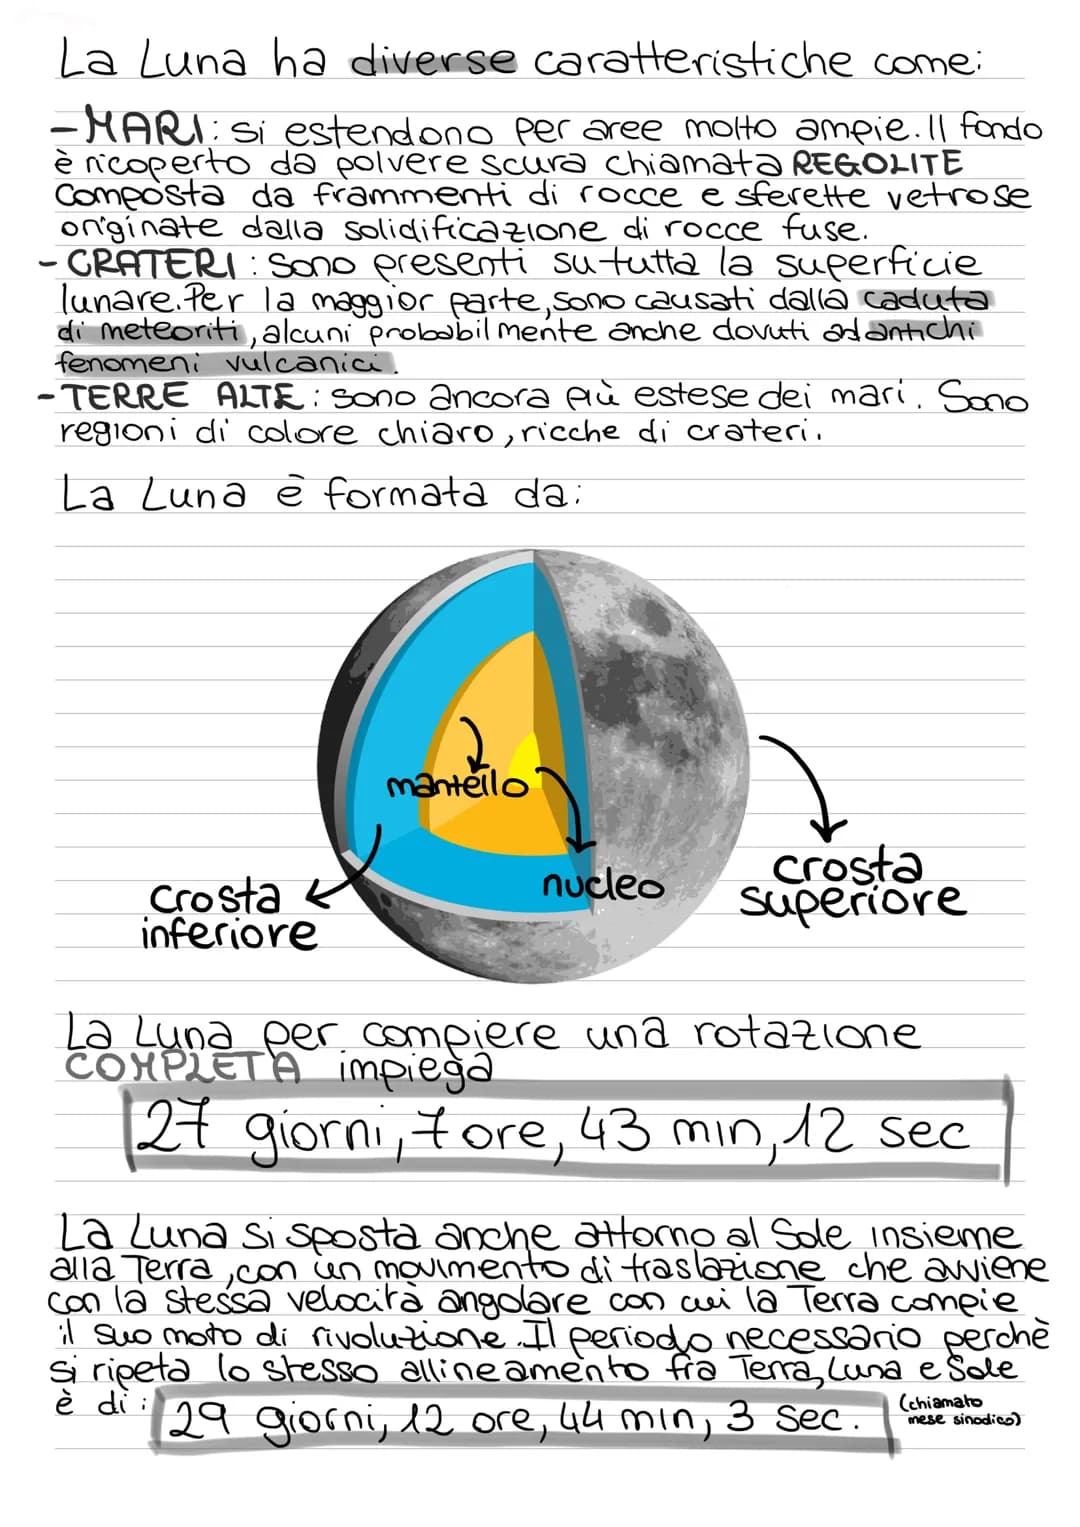 La Luna ha diverse caratteristiche come:
- MARI: si estendono per aree molto ampie. Il fondo
è ricoperto da polvere scura chiamata REGOLITE
composta da frammenti di rocce e sferette vetrose
originate dalla solidificazione di rocce fuse.
- CRATERI: sono presenti su tutta la superficie
lunare. Per la maggior parte, sono causati dalla caduta
di meteoriti, alcuni probabilmente anche dovuti ad antichi
fenomeni vulcanici.
- TERRE ALTE: sono ancora più estese dei mari. Sono
regioni di colore chiaro, ricche di crateri.
La Luna è formata da:
mantello
nucleo
crosta
superiore
crosta
inferiore
La Luna per compiere una rotazione
COMPLETA impiega
27 giorni, 7 ore, 43 min, 12 sec
La Luna si sposta anche attorno al Sole insieme
alla Terra, con un movimento di traslazione che avviene
con la stessa velocità angolare con cui la Terra compie
il suo moto di rivoluzione. Il periodo necessario perchè
si ripeta lo stesso allineamento fra Terra, Luna e Sole
è di: 29 giorni, 12 ore, 44 min, 3 sec. (chiamato
mese sinodico)